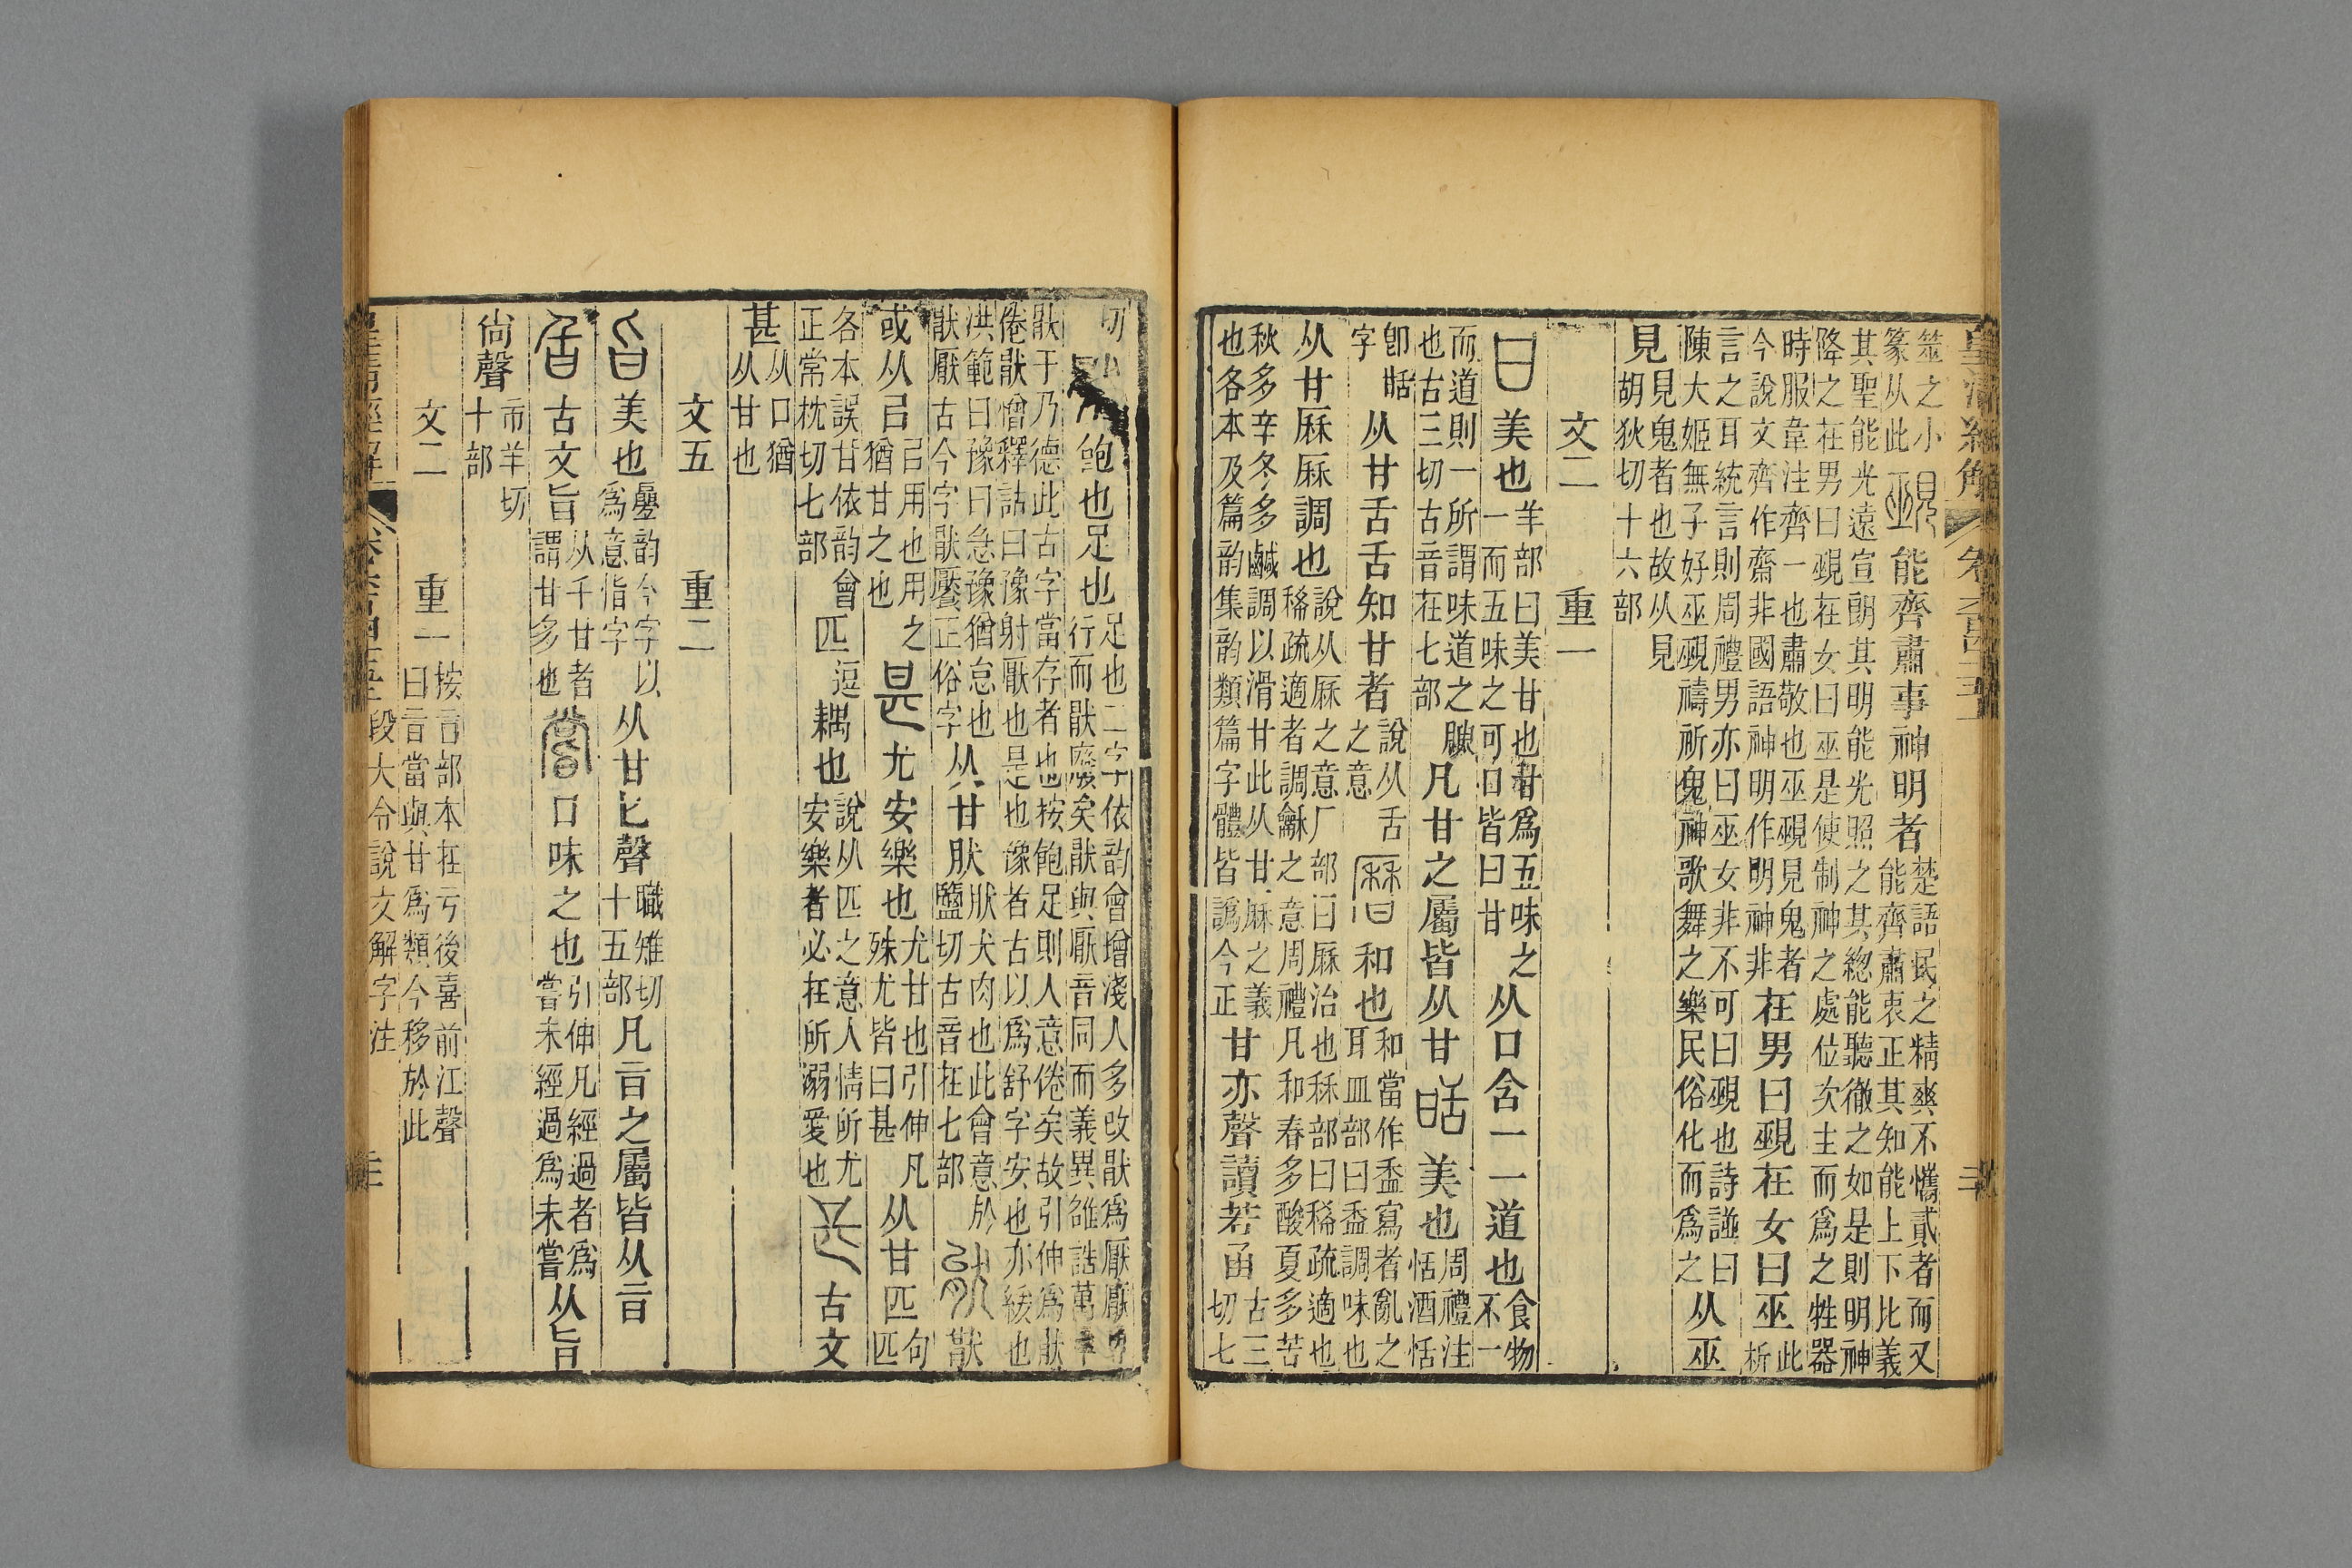 皇清經解 卷六百四十五
筮之小篆从此覡能齊肅事神明者楚語民之精爽不㩦貳者而又能齊肅衷正其知能上下比義
其聖能光遠宣朗其明能光照之其總能聽徹之如是則明神降之在男曰覡在女曰巫是使制神之處位次主而爲之牲器
時服韋注齊一也肅敬也巫覡見鬼者今說文齊作齋非國語神明作明神非在男曰覡在女曰巫此析
言之耳統言則周禮男亦曰巫女非不可曰覡也詩譜曰陳大姬無子好巫覡禱祈鬼神歌舞之樂民俗化而爲之从巫
見見鬼者也故从見胡狄切十六部
文二 重一
甘美也羊部曰美甘也甘爲五味之一而五味之可口皆曰甘从口含一一道也食物不一
而道則一所謂味道之腴也古三切古音在七部凡甘之屬皆从甘𤮾美也周禮注恬酒恬
卽𤮾字从甘舌舌知甘者說从舌之意𤯌和也和當作盉寫者亂之耳皿部曰盉調味也
从甘厤厤調也說从厤之意厂部曰厤治也秝部曰稀疏適也稀疏適者調龢之意周禮凡和春多酸夏多苦
秋多辛冬多鹹調以滑甘此从甘厤之義也各本及篇韵集韵類篇字體皆譌今正甘亦聲讀若函古三切七
切 飽也足也足也二字依韵會增淺人多改猒爲厭厭專行而猒廢矣猒與厭音同而義異雒誥萬年
猒于乃德此古字當存者也按飽足則人意倦矣故引伸爲猒倦猒憎釋詁曰豫射厭也是也豫者古以爲舒字安也亦緩也
洪範曰豫曰急豫猶怠也猒厭古今字猒饜正俗字从甘肰肰犬肉也此會意於鹽切古音在七部𤟊猒
或从㠯㠯用也用之猶甘之也甚尤安樂也尤甘也引伸凡殊尤皆曰甚从甘匹句匹
各本誤甘依韵會正常枕切七部匹逗耦也說从匹之意人情所尤安樂者必在所溺愛也𠯕古文
甚从口猶从甘也
文五 重二
旨美也疊韵今字以爲意恉字从甘匕聲職雉切十五部凡旨之屬皆从旨
𣅌古文旨从千甘者謂甘多也嘗口味之也引伸凡經過者爲嘗未經過爲未嘗从旨
尚聲市羊切十部
文二 重一按旨部本在亏後喜前江聲曰旨當與甘爲類今移於此
皇清經解 卷六百四十五 段大令說文解字注